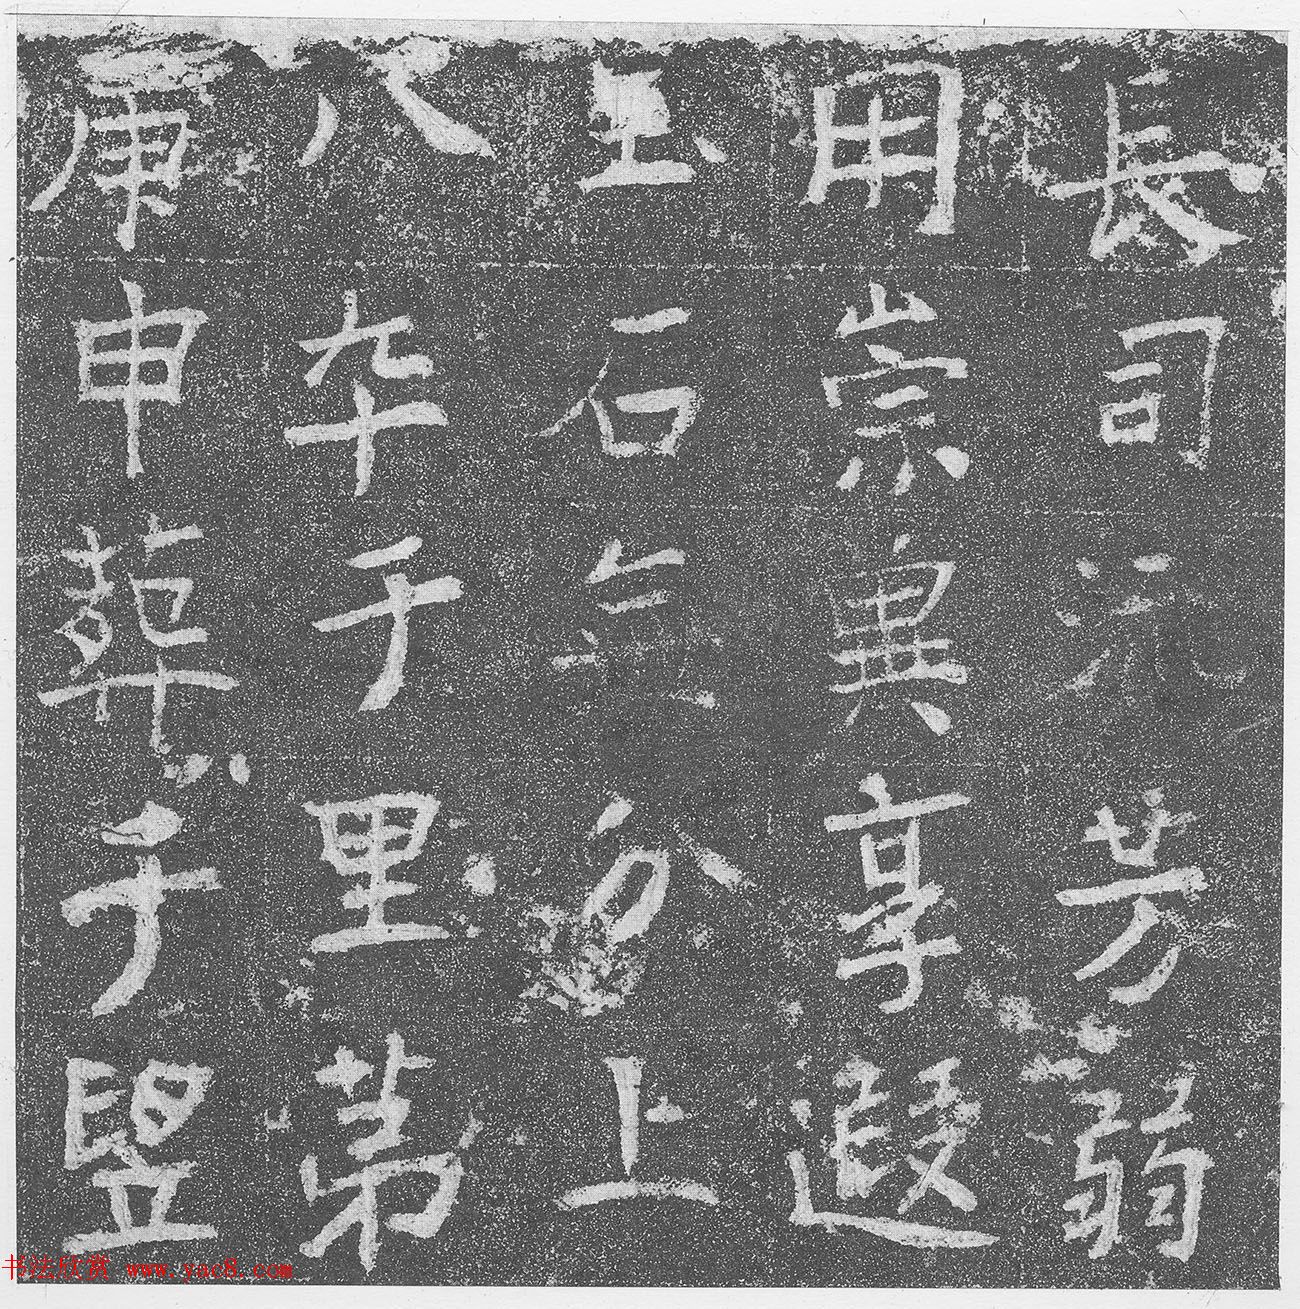 長司沅芳弱
用崇異享遐
玉石上
八卒于里第
庚申葬于竪
书法欣赏 www.yac8.com